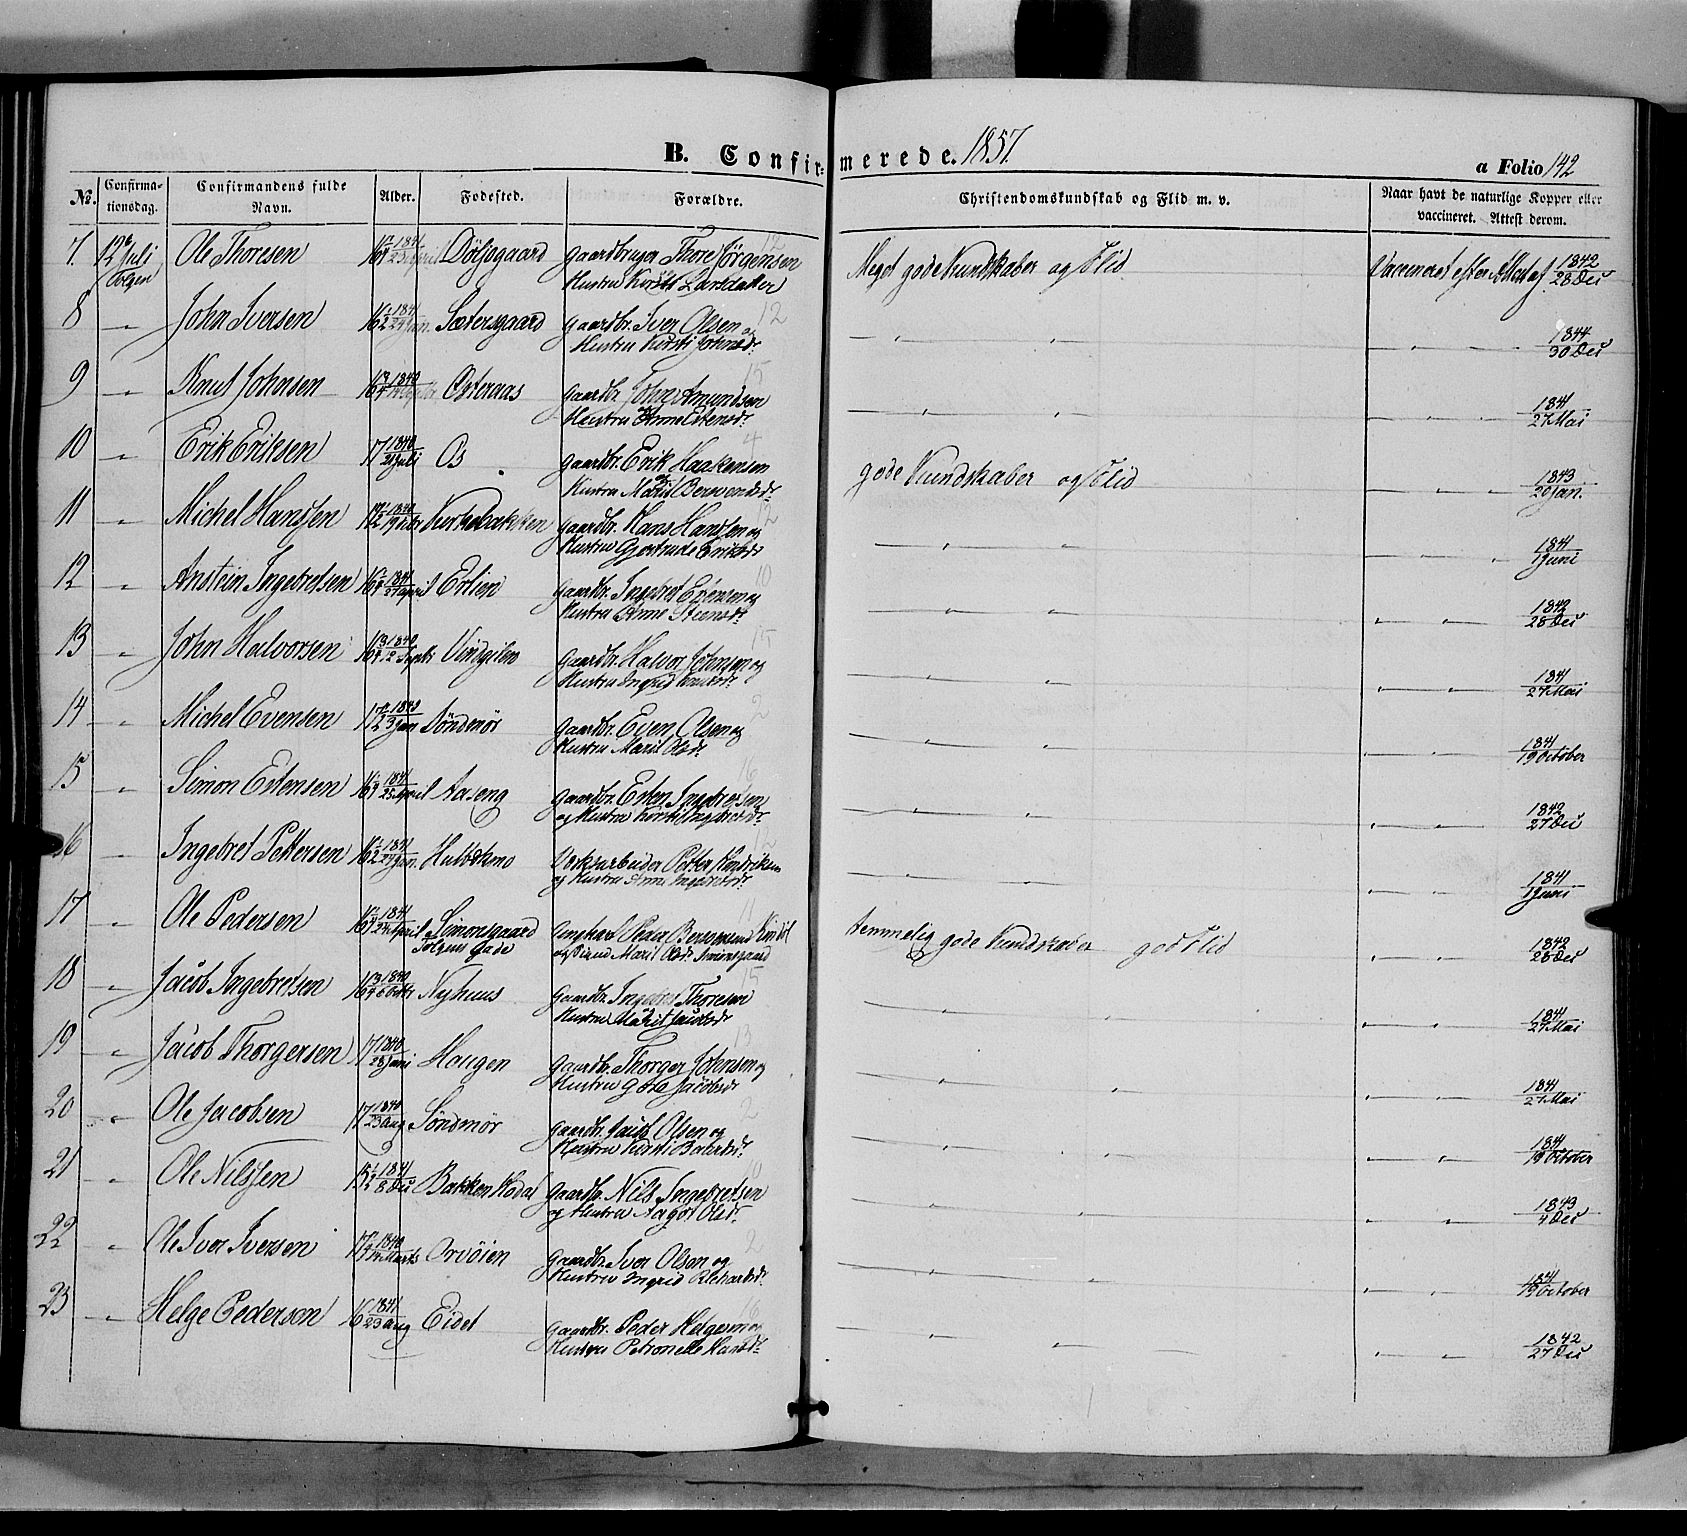 B. Confirmerede. 1857.
a Folio 142
No. Confirmationsdag. Confirmandens fulde Navn. Alder. Fødested. Forældre. Christendomskundskab og Flid m. v. Naar havt de naturlige Kopper eller vaccineret. Attest derom.
7. 12te Juli Ole Thoresen 1841 Gaardbruger Thore Jørgensen Meget gode Kundskaber og Flid Vaccineret efter Attest af 1842
Tolgen Hustru Kirsti Larsdatter 28 Dec
8 " John Iversen 16 1/2 1841 Sætersgaard Gaardbr. Iver Olsen og " " 1844
24 Jan. Hustru Kirsti Johnsd. 30 Dec
9 " Knut Johnsen 16 3/4 1840 Østeraas Gaardbr. John Amundsen " " 1841
Hustru Anne Estensdr. 27 Mai
10 " Erik Eriksen 17 1840 Os Gaardbr. Erik Haakensen gode Kundskaber og Flid 1843
21 Juli Hustru Marit Berovendsdr. 20 Jan.
11 " Michel Hanssen 1840 Kirkebakken Gaardbr. Hans Hanssen og " " 1841
Hustru Gjertrude Eriksdr 1 Juni
12 " Anstein Ingebretsen 16 1/4 1841 Erlien Gaardbr. Ingebret Estensen og " " 1842
21 April Hustru Anne Steensdr. 28 Dec
13 " John Halvorsen 16 3/4 1840 Vingilen Gaardbr. Halvor Johnsen og " " 1841
2 Septr Hustru Ingrid 27 Mai
14 " Michel Evensen 17 1/2 1840 Søndmör Gaardbr. Even Olsen og " " 1841
3 Jan Hustru Marit Olsdr. 19 October
15 " Simon Estensen 16 1/4 1841 Aaseng Gaardbr. Esten Ingebretsen " " 1842
25 April og Hustru Kirsti Ingebretsdr. 27 Dec
16 " Ingebret Pettersen 16 1/2 1841 Værksarbeider Petter Hendriksen " " 1841
Jan. og Hustru Anne Ingebretsdr. 1 Juni
17 " Ole Pedersen 16 1/4 1841 Simonsgaard Ungkarl Peder temmelig gode Kundskaber god Flid 1842
24 April Tolgens Gade og Pigen Marit Olsdr. Simensgaard 28 Dec
18 " Jacob Ingebretsen 16 3/4 1840 Nyhuus Gaardbr. Ingebret Thoresen " " 1841
6 Octbr Hustru Marit Jacobsdr 27 Mai
19 " Jacob Thorgersen 17 1840 Haugen Gaardbr. Thorger Johnsen og " " 1841
28 Juni Hustru Göra Jacobsdr 27 Mai
20 " Ole Jacobsen 17 1840 Søndmör Gaardbr. Jacob Olsen og " " 1841
23 Aug Hustru Kirsti 19 October
21 " Ole Nilssen 15 1/2 1841 Bakken Hodal Gaardbr. Nils Ingebretsen " " 1843
8 Dec og Hustru Aagot Olsdr. 4 Dec
22 " Ole Iver Iversen 17 1/4 1840 Orvöien Gaardbr. Iver Olsen og " " 1841
14 Marts Hustru Ingrid Richardsdr. 19 October
23 " Helge Pederson 16 1841 Eidet Gaardbr. Peder Helgesen og " " 1842
23 Aug Hustru Petronelle Hansdr. 27 Dec